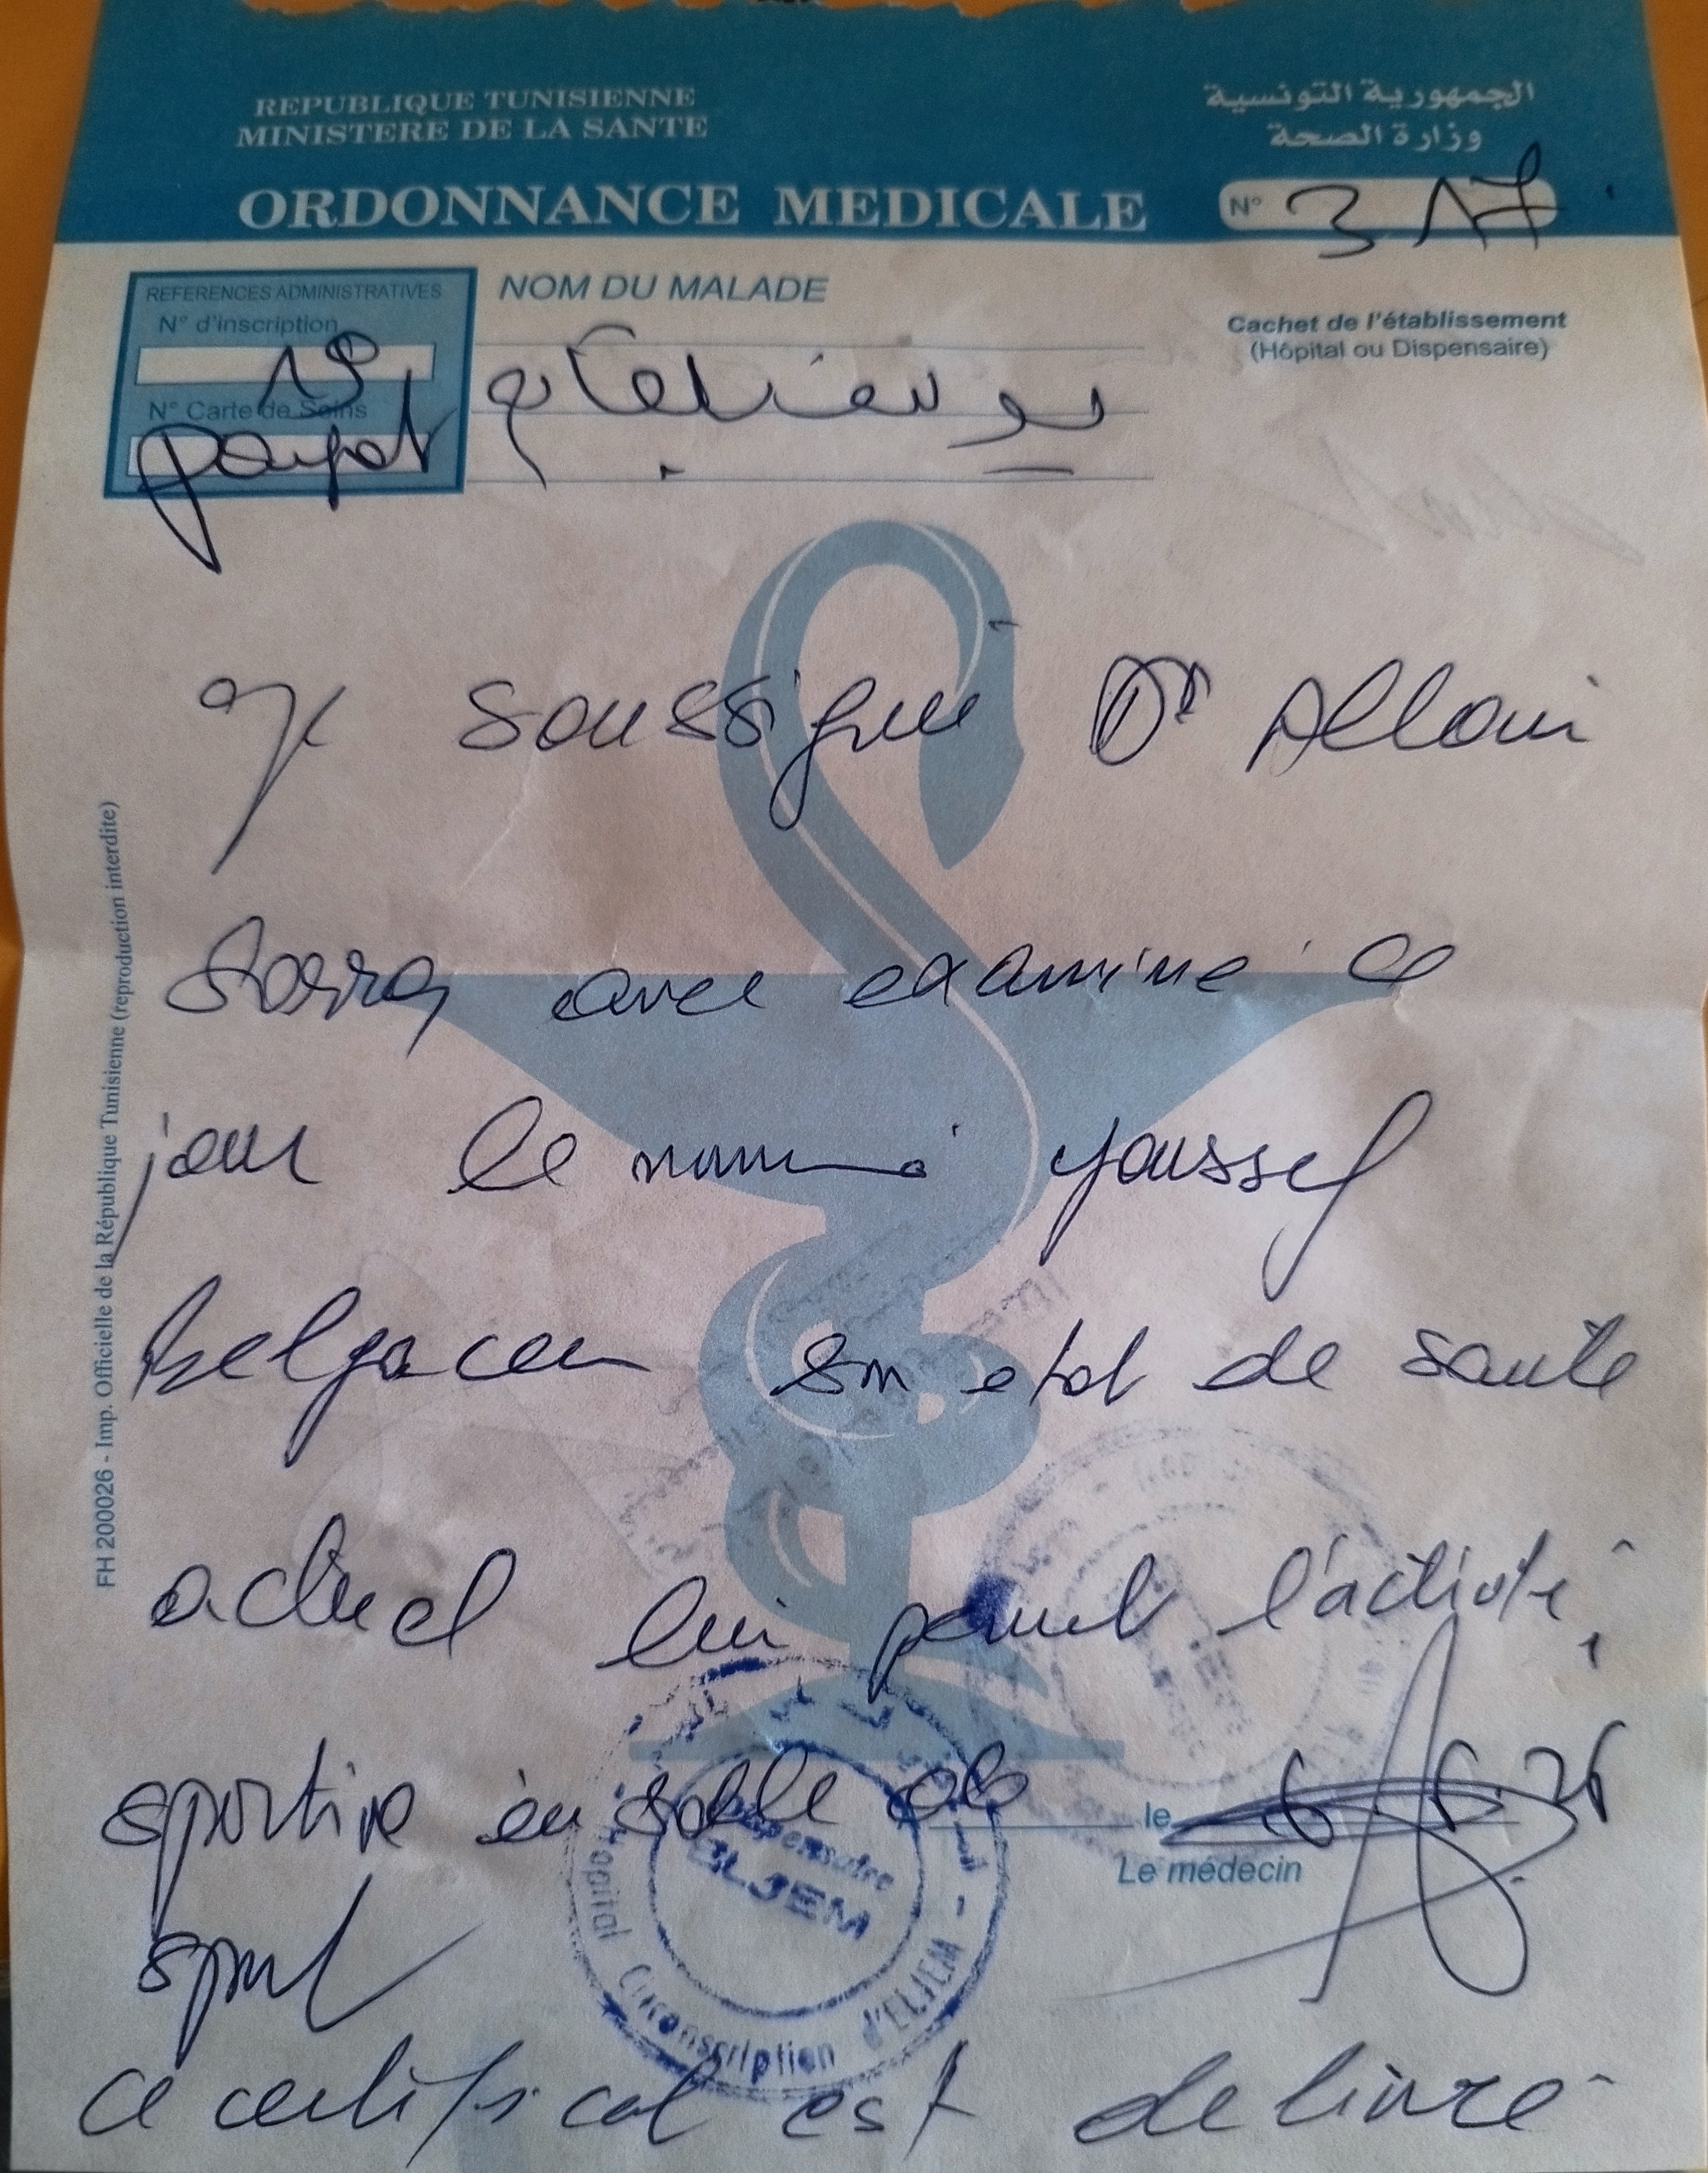 REPUBLIQUE TUNISIENNE
MINISTERE DE LA SANTE
الجمهورية التونسية
وزارة الصحة
ORDONNANCE MEDICALE
N° 317
REFERENCES ADMINISTRATIVES
N° d'inscription
N° Carte de Soins
NOM DU MALADE
يوسف بلقاسم
Cachet de l'établissement
(Hôpital ou Dispensaire)
Je soussigné Dr Allani
Sarra avec examiné ce
jour le nommé Youssef
Belgacem son etat de santé
actuel lui permet l'activité
sportive en salle de
sport
le 6.6.26
Le médecin
Dispensaire
ELJEM
Hopital Circonscription d'ELJEM
ce certificat est delivré
FH 200026 - Imp. Officielle de la République Tunisienne (reproduction interdite)